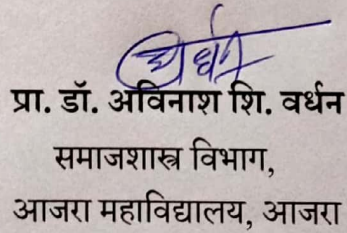 प्रा. डॉ. अविनाश शि. वर्धन
समाजशास्त्र विभाग,
आजरा महाविद्यालय, आजरा